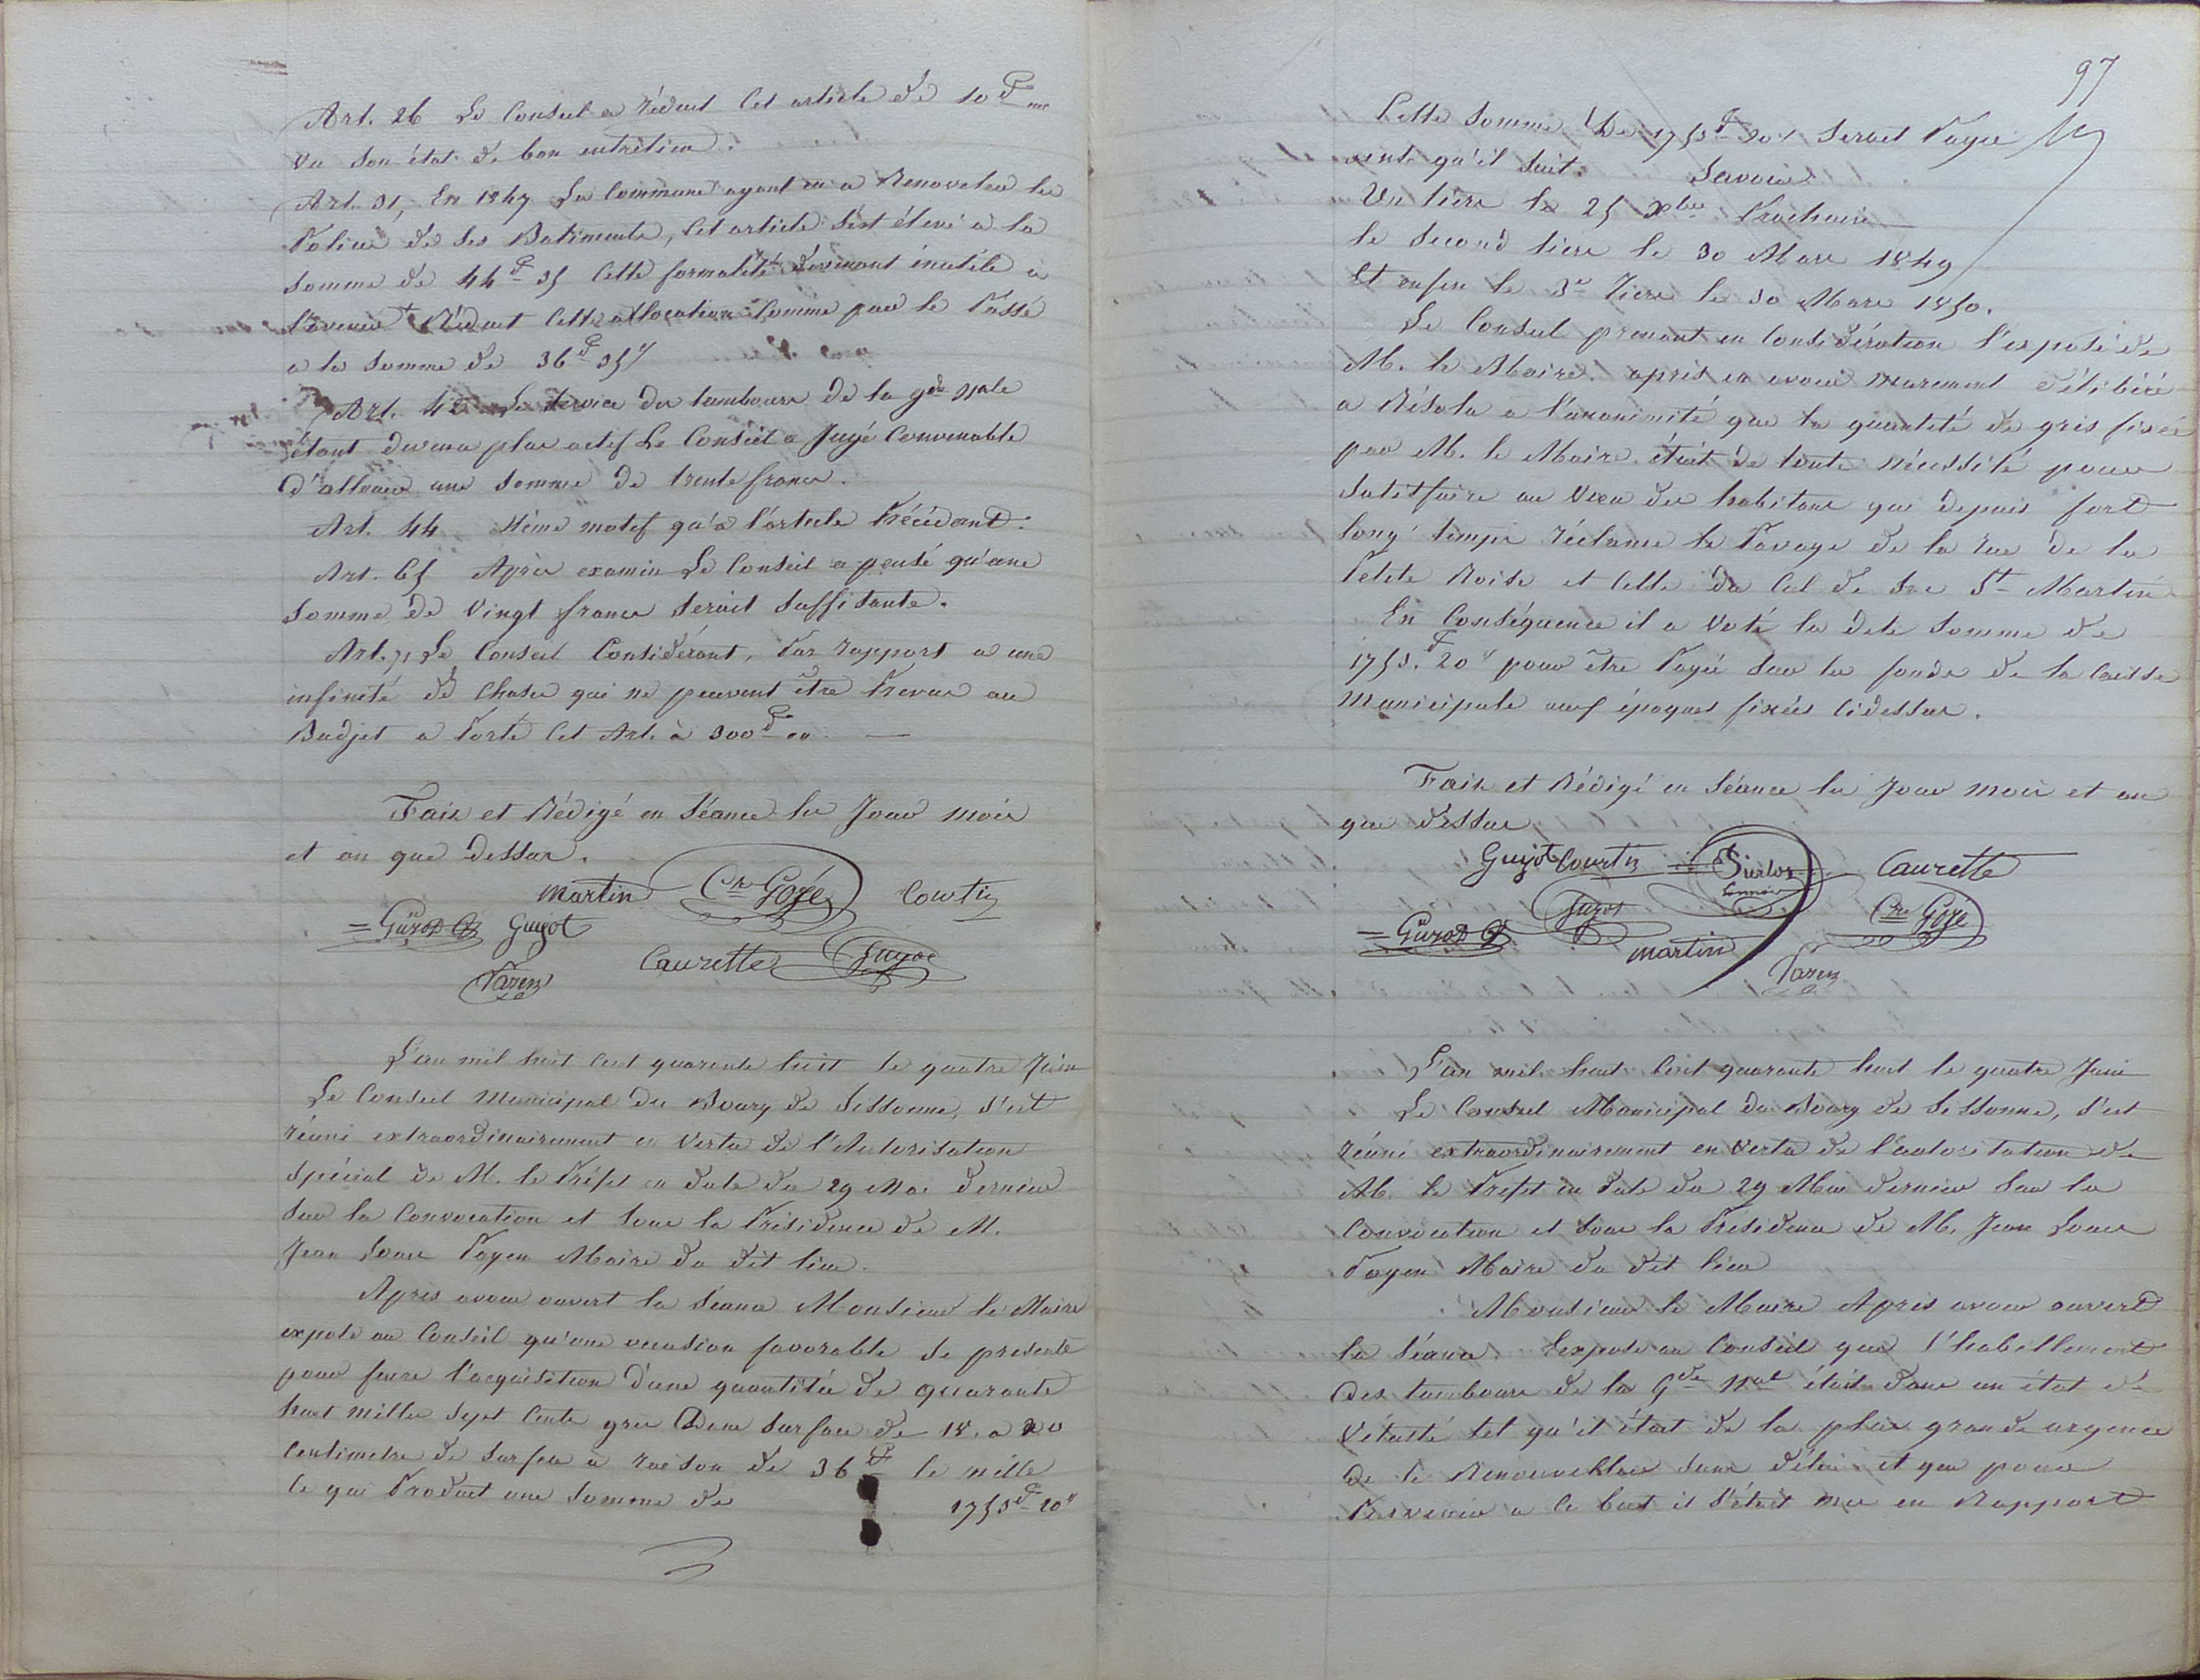 Art. 26 Le Conseil a réduit Cet article de 10 F "
Vu Son état de bon entretien.
Art. 31, En 1847 La Commune ayant eu a Renouveler les
Polices de Ses Batiments, Cet article s'est élevé a la
Somme de 44 F 35 Cette formalité devenant inutile à
l'avenir Réduit Cette allocation Comme par le Passé
a la Somme de 36 F 35 c
Art. 42 Le Service des tambours de la gde Nale
étant devenu plus actif Le Conseil a Jugé Convenable
d'allouer une Somme de trente francs.
Art. 44 Même motif qu'a l'article Précédant.
Art. 65 Après examin Le Conseil a pensé qu'une
Somme de Vingt francs Serait Suffisante.
Art. 71 Le Conseil Considérant, Par rapport a une
infinité de Choses qui ne peuvent être Prevus au
Budjet a Porté Cet Art. à 300 F "
Fais et Rédigé en Séance les Jour mois
et an que dessus.
martin Cre Gozé Courtin
Guyot Guyot
Caurette Guyot
Payen
L'an mil huit Cent quarante huit le quatre Juin
Le Conseil Municipal du Bourg de Sissonne, S'est
réuni extraordinairement en Vertu de l'Autorisation
Spécial de M. le Préfet en date du 29 Mai dernier
Sur la Convocation et Sous la Présidence de M.
Jean Louis Payen Maire du dit lieu.
Apres avoir ouvert la Séance Monsieur le Maire
expose au Conseil qu'une occasion favorable Se presente
pour faire l'acquisition d'une quantitée de quarante
huit milles Sept Cents gres D'une Surface de 18. a 20
Centimetre de Surface à raison de 36 F le mille
Ce qui Produit une Somme de 1753 F 20 c
97
Cette Somme De 1753 F 20 c Serait Payée
ainsi qu'il Suit. Savoir
Un tiers le 25 Xbre Prochain
le Second tiers le 30 Mars 1849
Et enfin le 3e Tiers le 30 Mars 1850.
Le Conseil prenant en Considération l'exposé de
M. le Maire. après en avoir murement délibéré
a Résolu a l'unanimité que la quantité de gris fixée
par M. le Maire était de toute nécessité pour
Satisfaire au Voeu des habitans qui depuis fort
long temps réclame le Pavage de la rue de la
Petite Roise et Celle du Cul de Sac St Martin
En Conséquence il a Voté la dite Somme de
1753. F 20 c pour être Payée Sur les fonds de la Caisse
Municipale aux époques fixées Cidessus.
Fais et Rédigé en Séance les Jour mois et an
que dessus
Guyot Courtin Surlos Caurette
Guyot Guyot Cre Gozé
martin
Payen
L'an mil huit Cent quarante huit le quatre Juin
Le Conseil Municipal du Bourg de Sissonne, S'est
réuni extraordinairement en Vertu de l'autorisation de
M. le Préfet en date du 29 Mai dernier Sur la
Convocation et Sous la Présidence de M. Jean Louis
Payen Maire du dit lieu
Monsieur le Maire Après avoir ouvert
la Séance. Expose au Conseil que l'habillement
des tambours de la Gde Nal était dans un état de
Vétusté tel qu'il était de la plus grande urgence
de le Renouveller Sans délai et que pour
Parvenir a Ce but il S'était mis en Rapport